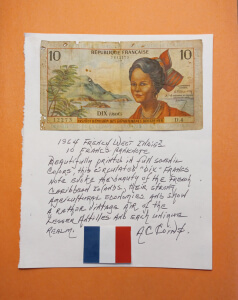 RÉPUBLIQUE FRANÇAISE
10
10
DIX FRANCS
D.4
1964 FRENCH WEST INDIES
10 FRANCS BANKNOTE
BEAUTIFULLY PRINTED IN FULL
COLORS THIS CIRCULATED "DIX" FRANCS
NOTE EVOKE THE BEAUTY OF THE FRENCH
CARIBBEAN ISLANDS, THEIR STRONG
AGRICULTURAL ECONOMIES AND SHOW
A RATHER VINTAGE AIR OF THE
LESSER ANTILLES AND EACH UNIQUE
REALM.